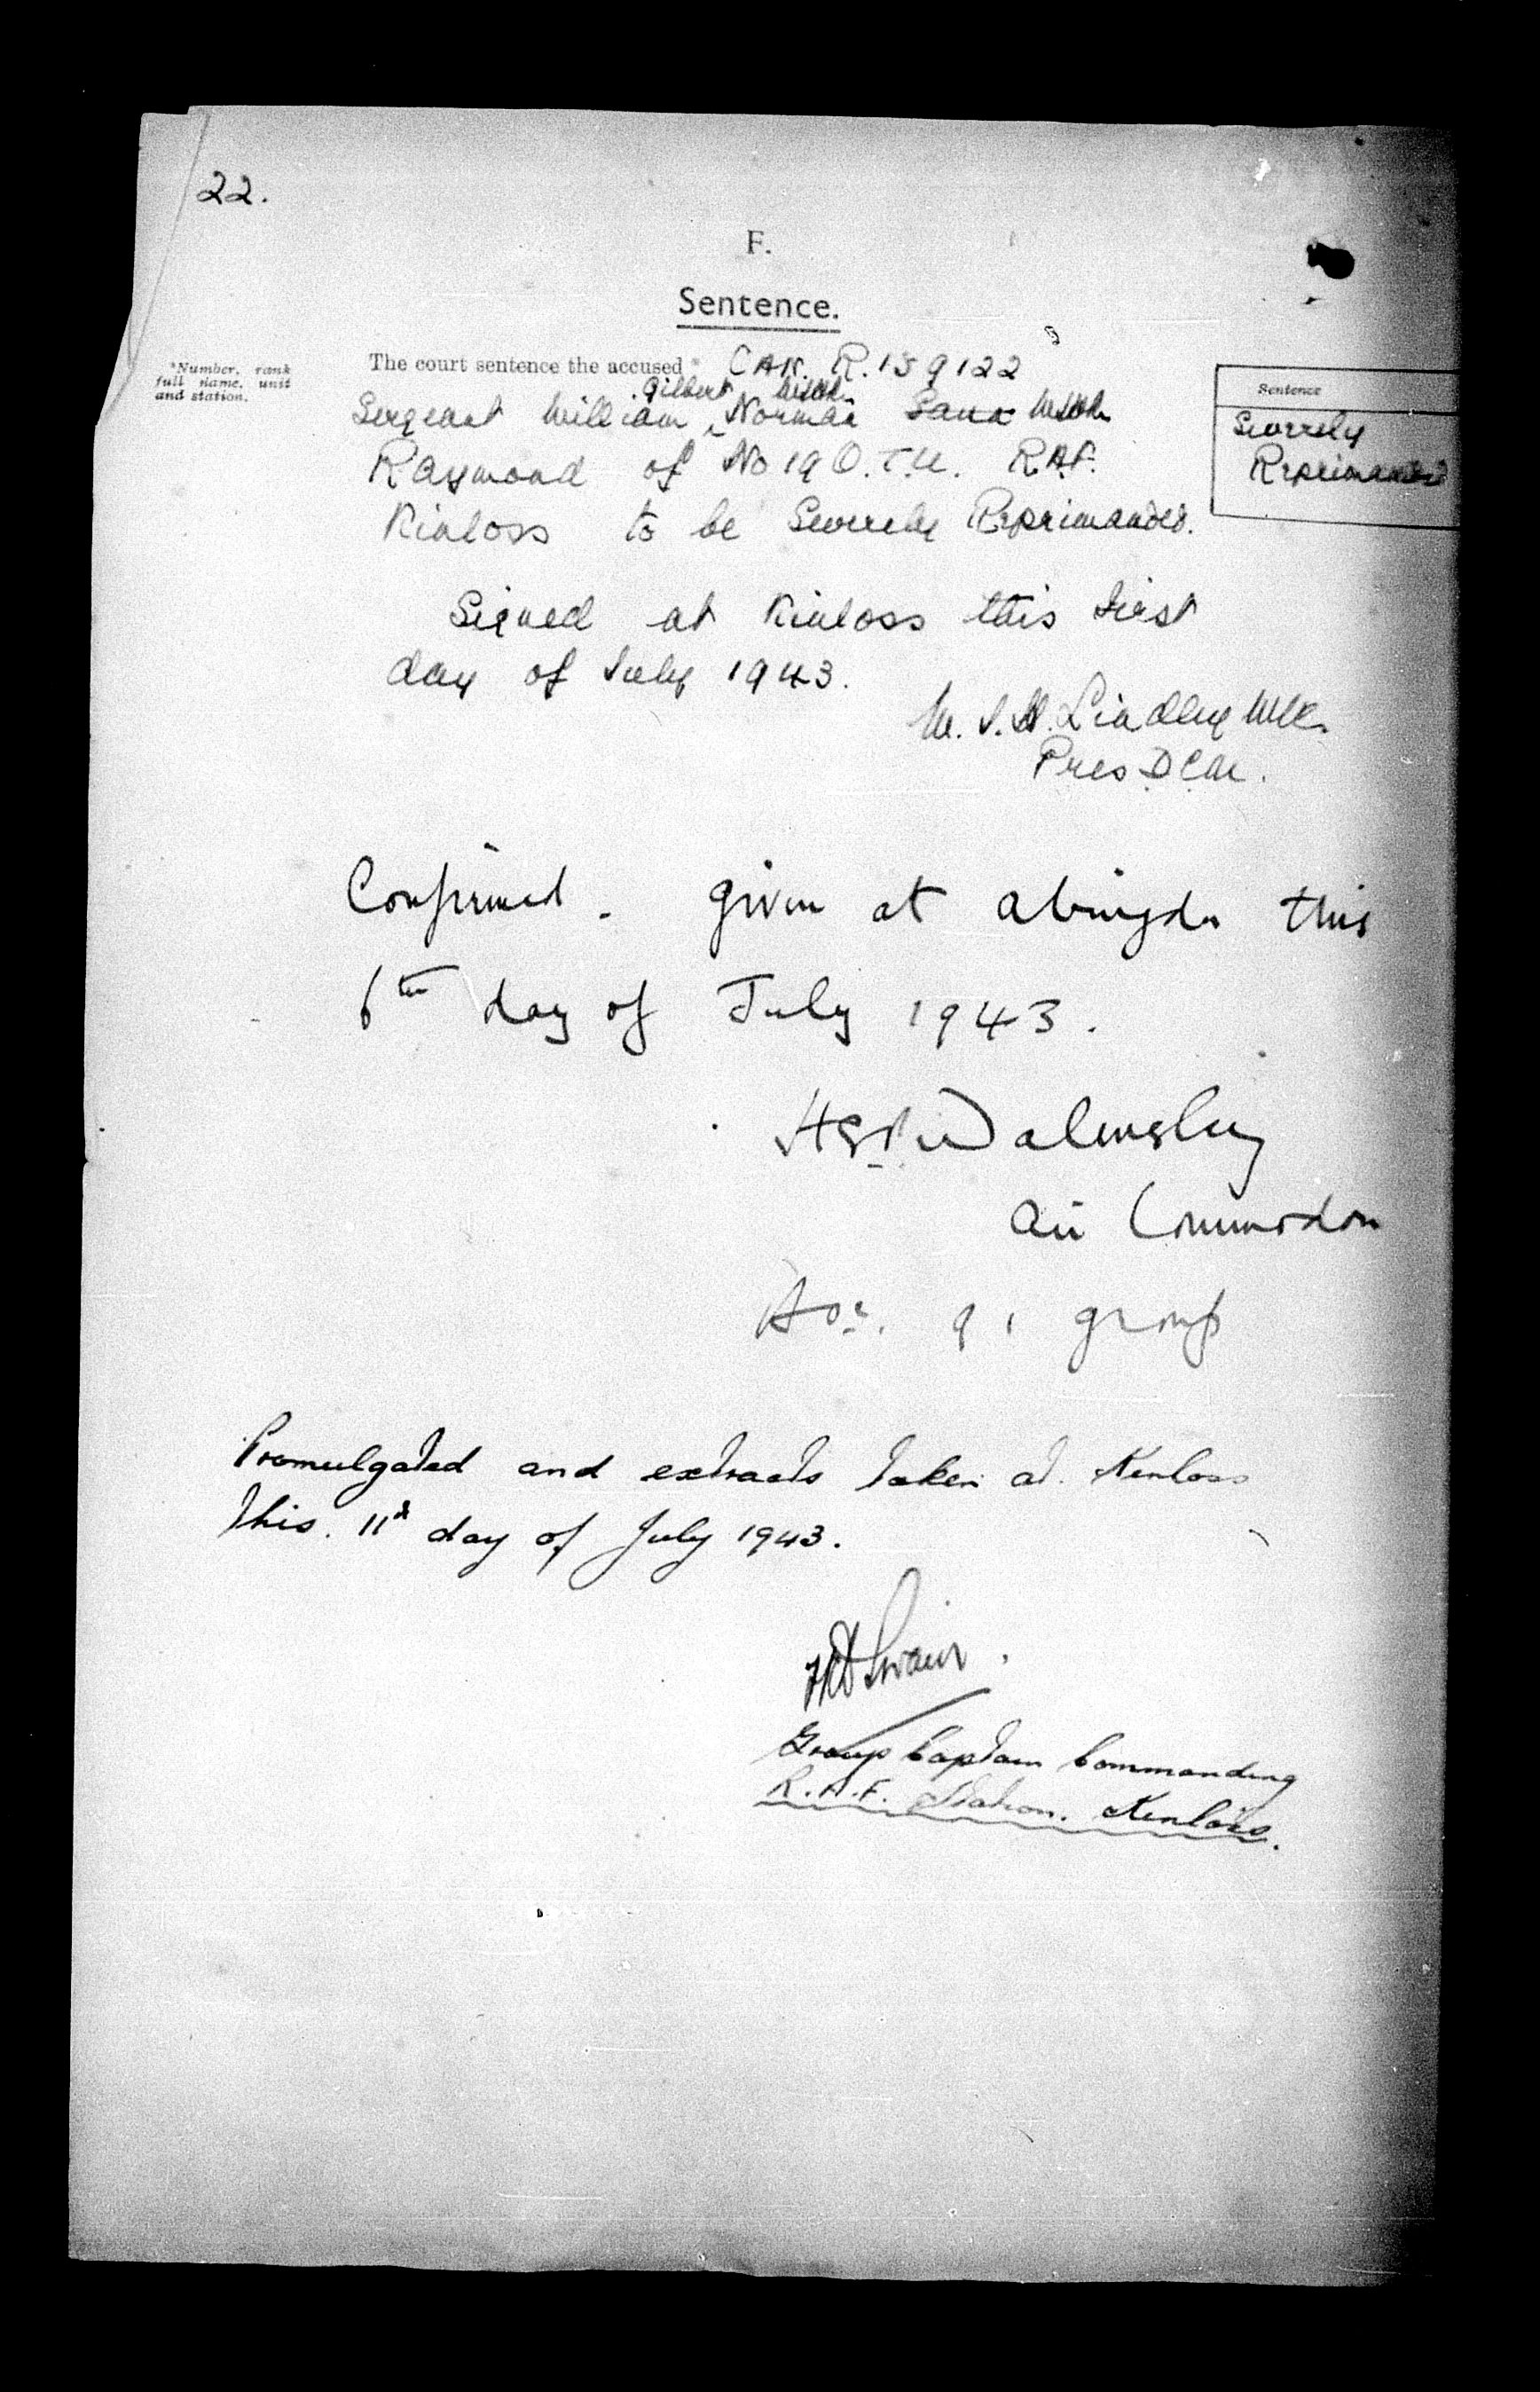 22.
F.
Sentence.
*Number, rank
full name, unit
and station.
The court sentence the accused * CAN. R.159122
Gilbert
Sergeant William Norman
Raymond of No 19 O.T.U. RAF.
Kinloss to be Severely Reprimanded.
Sentence
Severely
Reprimanded
Signed at Kinloss this first
day of July 1943.
Lindley W/C.
Pres D.C.M.
Confirmed. Given at Abingdon this
6th day of July 1943.
Walmsley
Air Commodore
91 Group
Promulgated and extracts taken at. Kinloss
this. 11th day of July 1943.
Swain.
Group Captain Commanding
R.A.F. Station. Kinloss.